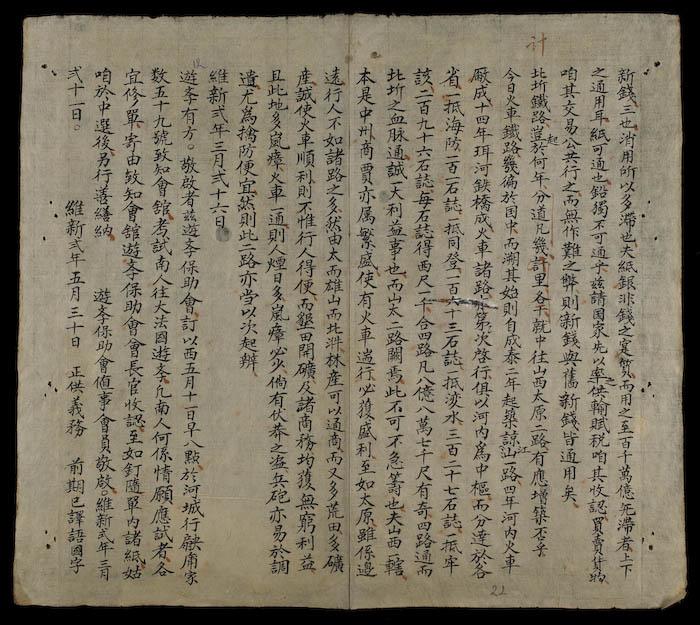 計
新錢三也消用所以多滯也夫紙銀非錢之定質而用之至百千萬億无滯者上下
之通用耳紙可通也鉛獨不可通乎茲請国家先以率供輸賦税咱其收認買賣貨物
咱其交易公共行之而無作難之弊則新錢與舊新錢皆通用矣
北圻鐵路起於何年分道凡幾計里各干就中往山西太原二路有應增築否乎
今日火車鐵路幾徧於国中而溯其始則自成泰二年起築諒江一路四年河内火車
厰成十四年珥河鉄橋成火車諸路第次啓行俱以河内為中樞而分達於各
省一抵海防一百一石誌一抵同登一百六十三石誌一抵水三百二十七石誌一抵牢
該二百九十六石誌每石誌得西尺一千合四路凡八億八萬七千尺有奇四路通而
北圻之血脉通誠一大利益事也而山太二路闕焉此不可不急籌也夫山西一轄
本是中州商賈亦属繁盛使有火車遄行必獲盛利至如太原雖係邊
遠行人不如諸路之多然由太而雄山而北𣴓林産可以通商而又多荒田多礦
産誠使火車順利則不惟行人得便而墾田開礦及諸商務均獲無窮利益
且此地多嵐瘴火車一通則人煙日多嵐瘴必少倘有伏莽之盗兵砲亦易於調
遣尤為擒防便宜然則此二路亦当以次起辨
維新弍年三月弍十六日
遊李有方。敬啟者茲遊李保助會訂以西五月十一日早八點於河城行甫家
数五十九號致知會舘考試南人往大法國遊李凡南人何係情願應試者各
宜修單寄由致知會舘遊李保助會會長官收認至如釘隨單内諸紙姑
咱於中選後另行善繕納 遊李保助會値事會員敬啟。維新弍年三月
弍十一日。 維新弍年五月三十日 正供義務 前期已譯語國字
22